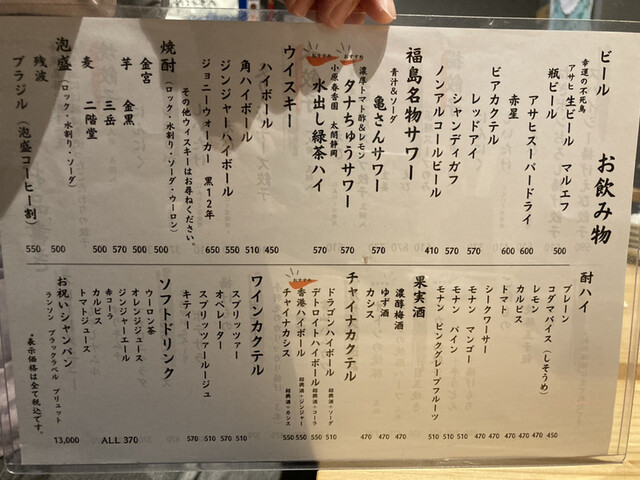 お飲み物
ビール
幸運の不死鳥
アサヒ 生ビール マルエフ 500
瓶ビール
アサヒスーパードライ 600
赤星 600
ビアカクテル
レッドアイ 570
シャンディガフ 570
ノンアルコールビール 410
福島名物サワー
青汁&ソーダ
亀さんサワー 570
おすすめ
濃厚トマト酢&レモン
タナちゅうサワー 570
おすすめ
小原春香園 太閤静岡
水出し緑茶ハイ 570
ウイスキー
ハイボール 450
角ハイボール 510
ジンジャーハイボール 550
ジョニーウォーカー 黒12年 650
その他ウィスキーはお尋ねください。
焼酎
(ロック・水割り・ソーダ・ウーロン)
金宮 500
芋 金黒 500
三岳 570
麦 二階堂 500
泡盛
(ロック・水割り・ソーダ)
残波 500
ブラジル (泡盛コーヒー割) 550
酎ハイ
プレーン 450
コダマバイス(しそうめ) 470
レモン 470
カルピス 470
トマト 470
シークワーサー 470
モナン マンゴー 510
モナン パイン 510
モナン ピンクグレープフルーツ 510
果実酒
濃醇梅酒 470
ゆず酒 470
カシス 470
チャイナカクテル
ドラゴンハイボール 紹興酒+ソーダ 510
デトロイトハイボール 紹興酒+コーラ 550
おすすめ
香港ハイボール 紹興酒+ジンジャー 550
チャイナカシス 紹興酒+カシス 550
ワインカクテル
スプリッツァー 510
オペレーター 570
スプリッツァールージュ 510
キティー 570
ソフトドリンク
ウーロン茶
オレンジジュース
ジンジャーエール
赤コーラ
カルピス
トマトジュース
ALL 370
お祝いシャンパン
ランソン ブラックラベル ブリュット 13,000
*表示価格は全て税込です。